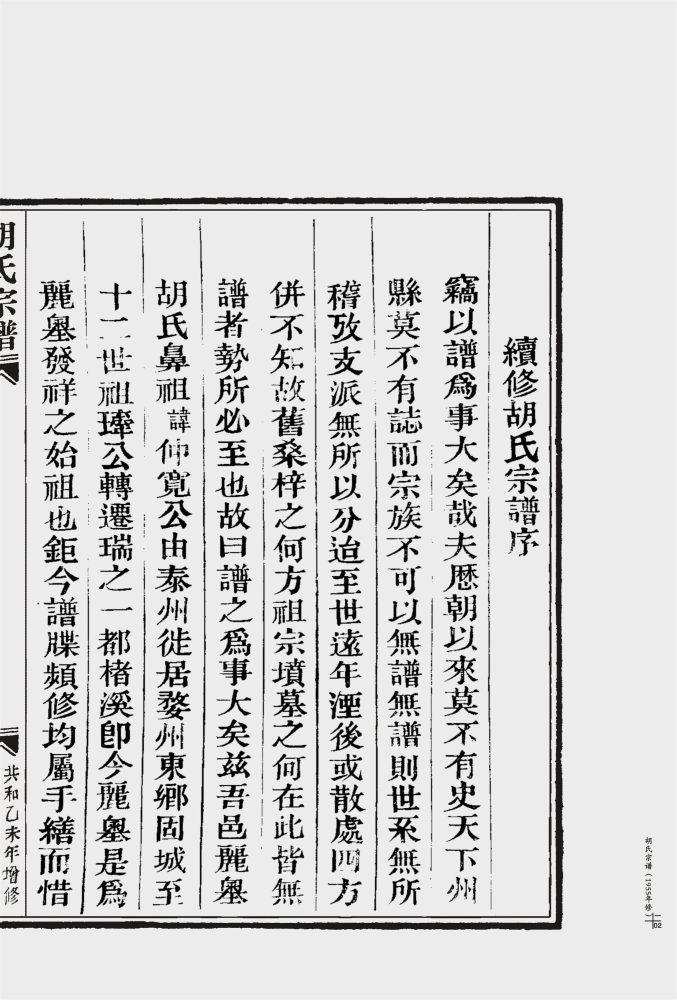 續修胡氏宗譜序
竊以譜爲事大矣哉夫歷朝以來莫不有史天下州
縣莫不有誌而宗族不可以無譜無譜則世系無所
稽攷支派無所以分迨至世遠年湮後或散處四方
併不知故舊桑梓之何方祖宗墳墓之何在此皆無
譜者勢所必至也故曰譜之爲事大矣茲吾邑麗嶴
胡氏鼻祖諱仲寬公由泰州徙居婺州東鄉固城至
十二世祖瑋公轉遷瑞之一都楮溪卽今麗嶴是爲
麗嶴發祥之始祖也鉅今譜牒頻修均屬手繕而惜
胡氏宗譜
共和乙未年增修
胡氏宗谱（1955年修）
二 02